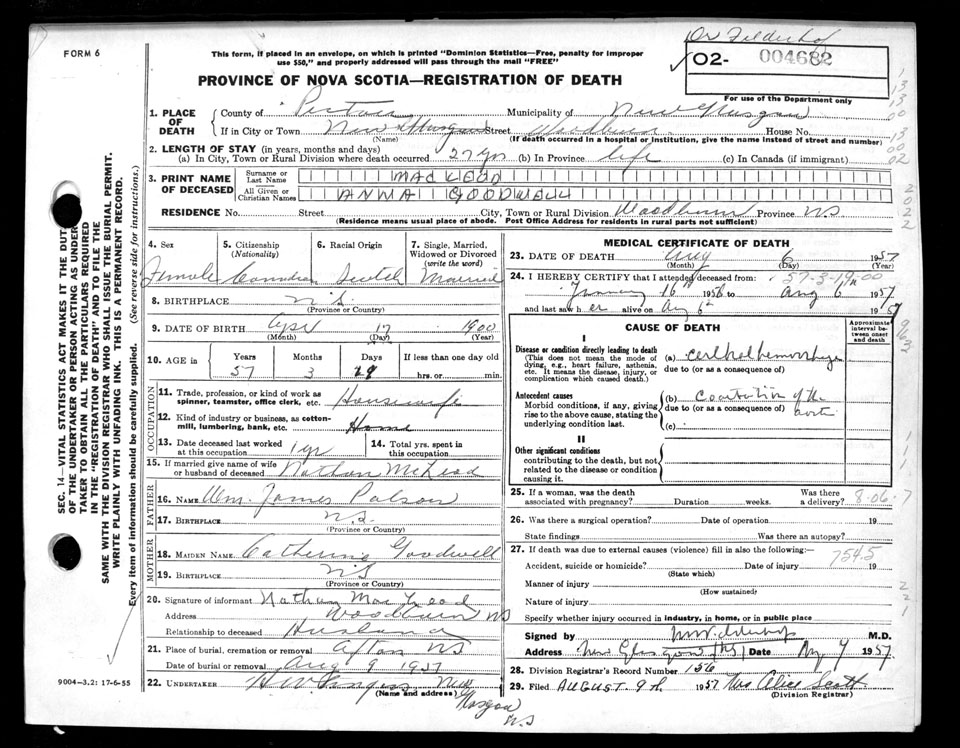 Dr Felderhof
FORM 6
This form, if placed in an envelope, on which is printed "Dominion Statistics—Free, penalty for improper
use $50," and properly addressed will pass through the mail "FREE"
O2- 004682
For use of the Department only
PROVINCE OF NOVA SCOTIA—REGISTRATION OF DEATH
1. PLACE OF DEATH
County of Pictou Municipality of New Glasgow
If in City or Town New Glasgow Street Woodburn House No.
(Name) (If death occurred in a hospital or institution, give the name instead of street and number)
2. LENGTH OF STAY (in years, months and days)
(a) In City, Town or Rural Division where death occurred 27 yrs (b) In Province life (c) In Canada (if immigrant)
3. PRINT NAME OF DECEASED
Surname or Last Name MACLEOD
All Given or Christian Names ANNA GOODWELL
RESIDENCE No. Street City, Town or Rural Division Woodburn Province NS
(Residence means usual place of abode. Post Office Address for residents in rural parts not sufficient)
4. Sex 5. Citizenship (Nationality) 6. Racial Origin 7. Single, Married, Widowed or Divorced (write the word)
Female Canadian Scotch Married
8. BIRTHPLACE N.S.
(Province or Country)
9. DATE OF BIRTH Apr 17 1900
(Month) (Day) (Year)
10. AGE in Years Months Days If less than one day old
57 3 19 hrs. or min.
OCCUPATION
11. Trade, profession, or kind of work as spinner, teamster, office clerk, etc. Housewife
12. Kind of industry or business, as cotton-mill, lumbering, bank, etc. Home
13. Date deceased last worked at this occupation 1 yr 14. Total yrs. spent in this occupation
15. If married give name of wife or husband of deceased Nathan McLeod
FATHER
16. NAME Wm. James Palson
17. BIRTHPLACE N.S.
(Province or Country)
MOTHER
18. MAIDEN NAME Catherine Goodwell
19. BIRTHPLACE NS
(Province or Country)
20. Signature of informant Nathan MacLeod
Address Woodburn NS
Relationship to deceased Husband
21. Place of burial, cremation or removal Afton NS
Date of burial or removal Aug 9 1957
22. UNDERTAKER New Glasgow NS
(Name and address)
9004-3.2: 17-6-55
MEDICAL CERTIFICATE OF DEATH
23. DATE OF DEATH Aug 6 1957
(Month) (Day) (Year)
24. I HEREBY CERTIFY that I attended deceased from: 57-3-19-00
January 16th 1956 to Aug 6 1957
and last saw her alive on Aug 6 1957
CAUSE OF DEATH
Approximate interval between onset and death
I
Disease or condition directly leading to death
(This does not mean the mode of dying, e.g., heart failure, asthenia, etc. It means the disease, injury, or complication which caused death.)
(a) cerebral hemorrhage
due to (or as a consequence of)
Antecedent causes
Morbid conditions, if any, giving rise to the above cause, stating the underlying condition last.
(b) Coarctation of the aorta
due to (or as a consequence of)
(c)
II
Other significant conditions
contributing to the death, but not related to the disease or condition causing it.
25. If a woman, was the death associated with pregnancy? Duration weeks. Was there a delivery?
26. Was there a surgical operation? Date of operation 19
State findings Was there an autopsy?
27. If death was due to external causes (violence) fill in also the following:—
754.5
Accident, suicide or homicide? Date of injury 19
(State which)
Manner of injury
(How sustained)
Nature of injury
Specify whether injury occurred in industry, in home, or in public place
Signed by M.D.
Address New Glasgow NS Date Aug 7 1957
28. Division Registrar's Record Number 156
29. Filed AUGUST. 9th 1957 Mrs Alice Scott
(Division Registrar)
SEC. 14—VITAL STATISTICS ACT MAKES IT THE DUTY
OF THE UNDERTAKER OR PERSON ACTING AS UNDERTAKER TO OBTAIN ALL THE PARTICULARS REQUIRED
IN THE "REGISTRATION OF DEATH" AND TO FILE THE
SAME WITH THE DIVISION REGISTRAR WHO SHALL ISSUE THE BURIAL PERMIT.
WRITE PLAINLY WITH UNFADING INK. THIS IS A PERMANENT RECORD.
Every item of information should be carefully supplied. (See reverse side for instructions.)